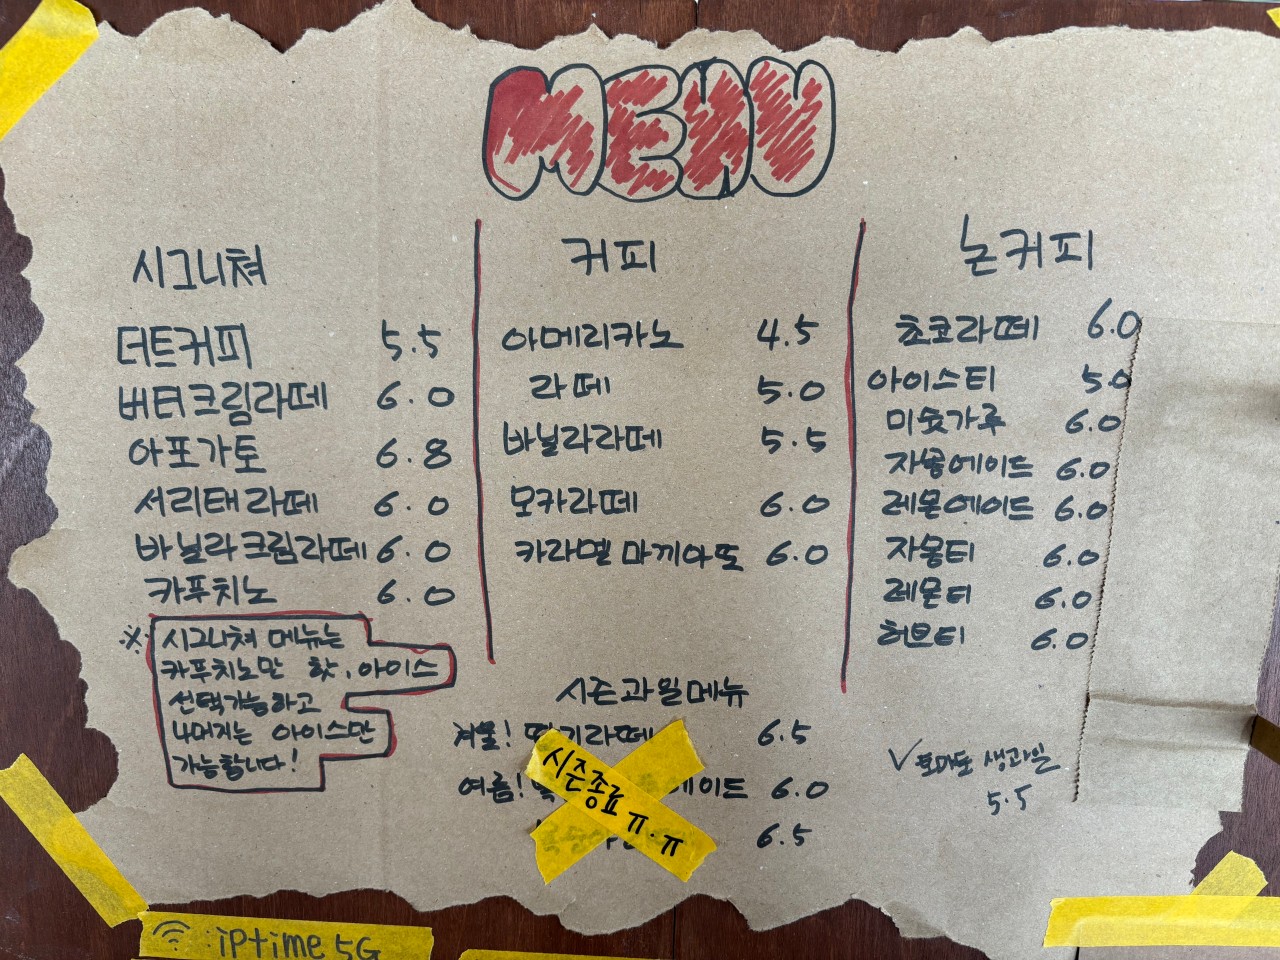 MENU
시그니쳐
더트커피 5.5
버터크림라떼 6.0
아포가토 6.8
서리태라떼 6.0
바닐라크림라떼 6.0
카푸치노 6.0
※ 시그니쳐 메뉴는
카푸치노만 핫,아이스
선택가능하고
나머지는 아이스만
가능합니다!
커피
아메리카노 4.5
라떼 5.0
바닐라라떼 5.5
모카라떼 6.0
카라멜 마끼아또 6.0
논커피
초코라떼 6.0
아이스티 5.0
미숫가루 6.0
자몽에이드 6.0
레몬에이드 6.0
자몽티 6.0
레몬티 6.0
허브티 6.0
✓토마토 생과일
5.5
시즌과일메뉴
겨울! 딸기라떼 6.5
여름! 에이드 6.0
6.5
시즌종료 ㅠ.ㅠ
iptime 5G